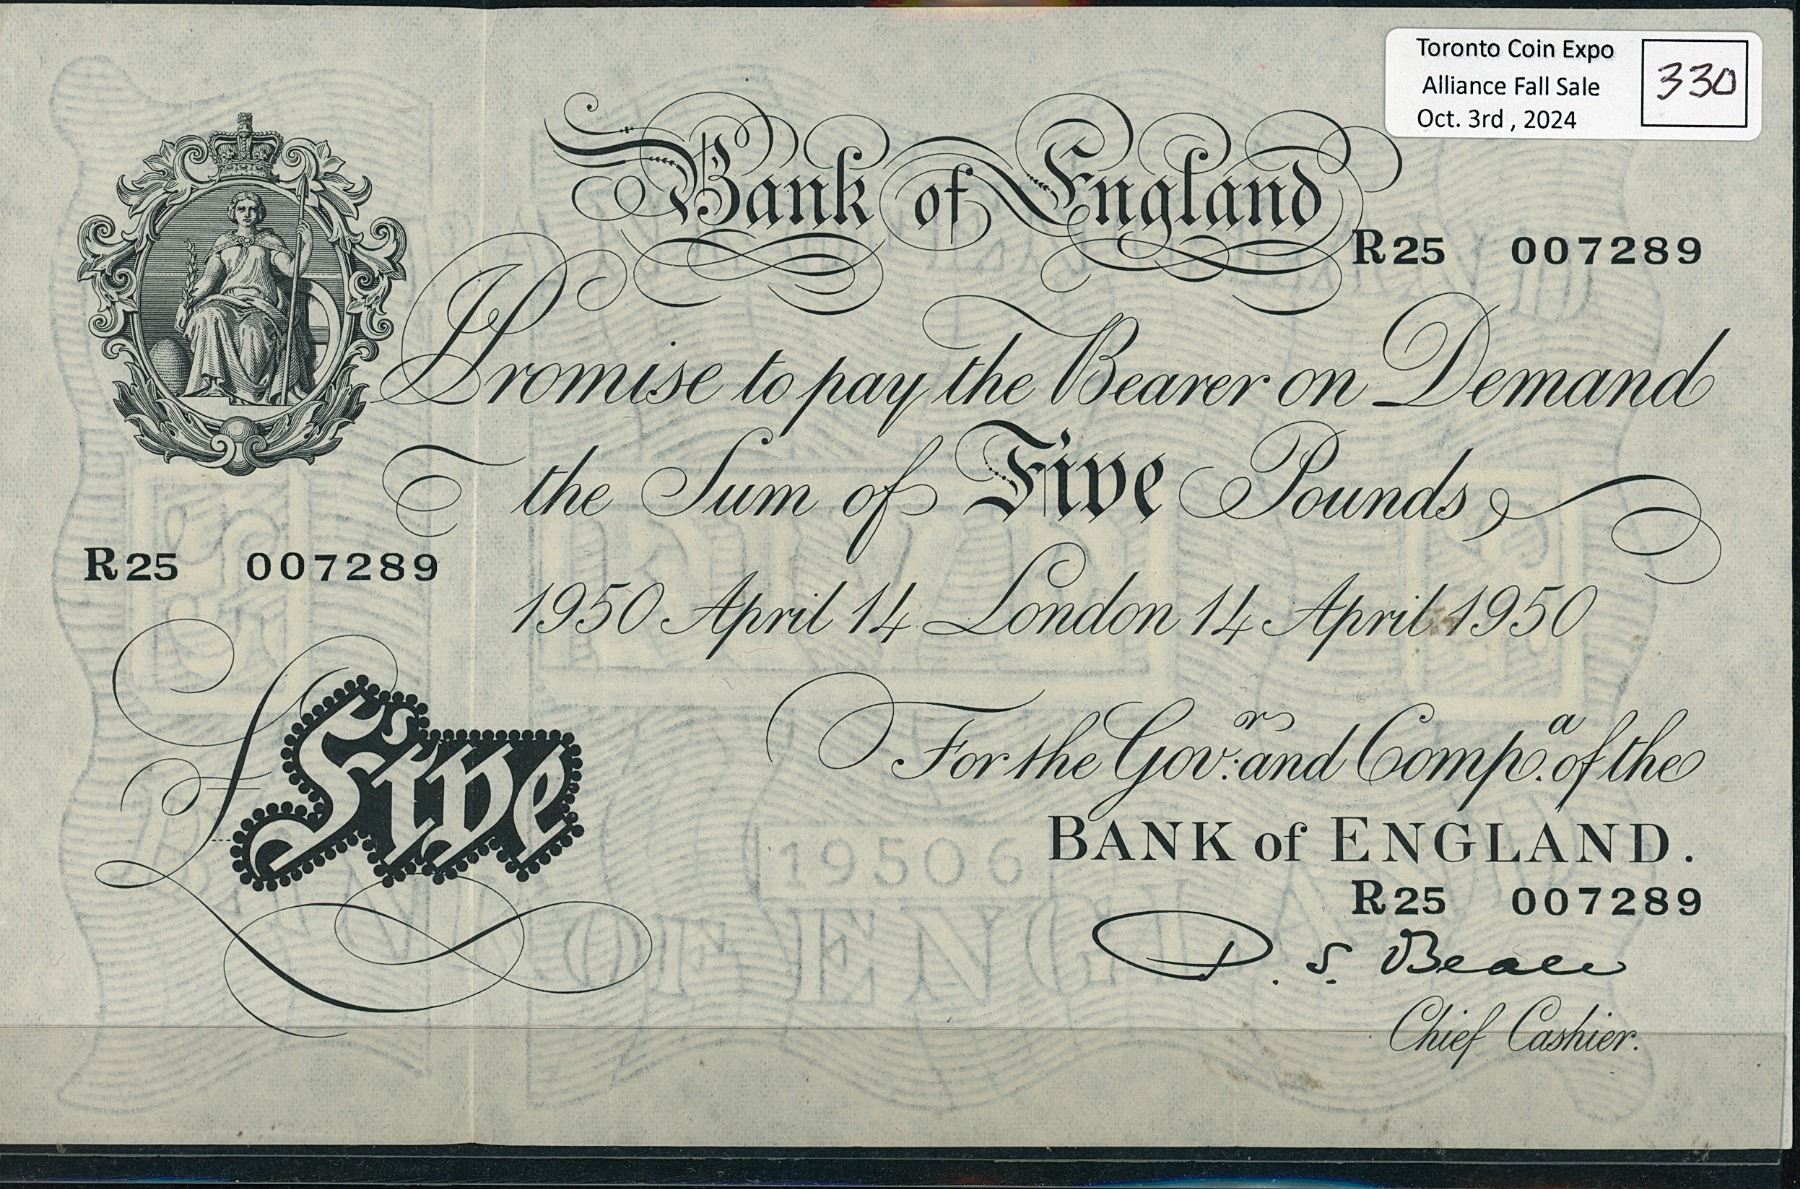 Toronto Coin Expo
Alliance Fall Sale
Oct. 3rd , 2024
330
Bank of England
R25 007289
I Promise to pay the Bearer on Demand
the Sum of Five Pounds
R25 007289
1950 April 14 London 14 April 1950
£Five
For the Gov.r and Comp.a of the
BANK of ENGLAND.
R25 007289
P. S. Beale
Chief Cashier.
19506
FIVE
OF ENGLAND